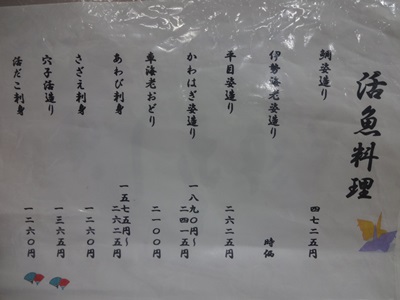 活魚料理
鯛姿造り 四七二五円
伊勢海老姿造り 時価
平目姿造り 二六二五円
かわはぎ姿造り 一八九〇円〜二四一五円
車海老おどり 二一〇〇円
あわび刺身 一五七五円〜二六二五円
さざえ刺身 一二六〇円
穴子活造り 一三六五円
活だこ刺身 一二六〇円